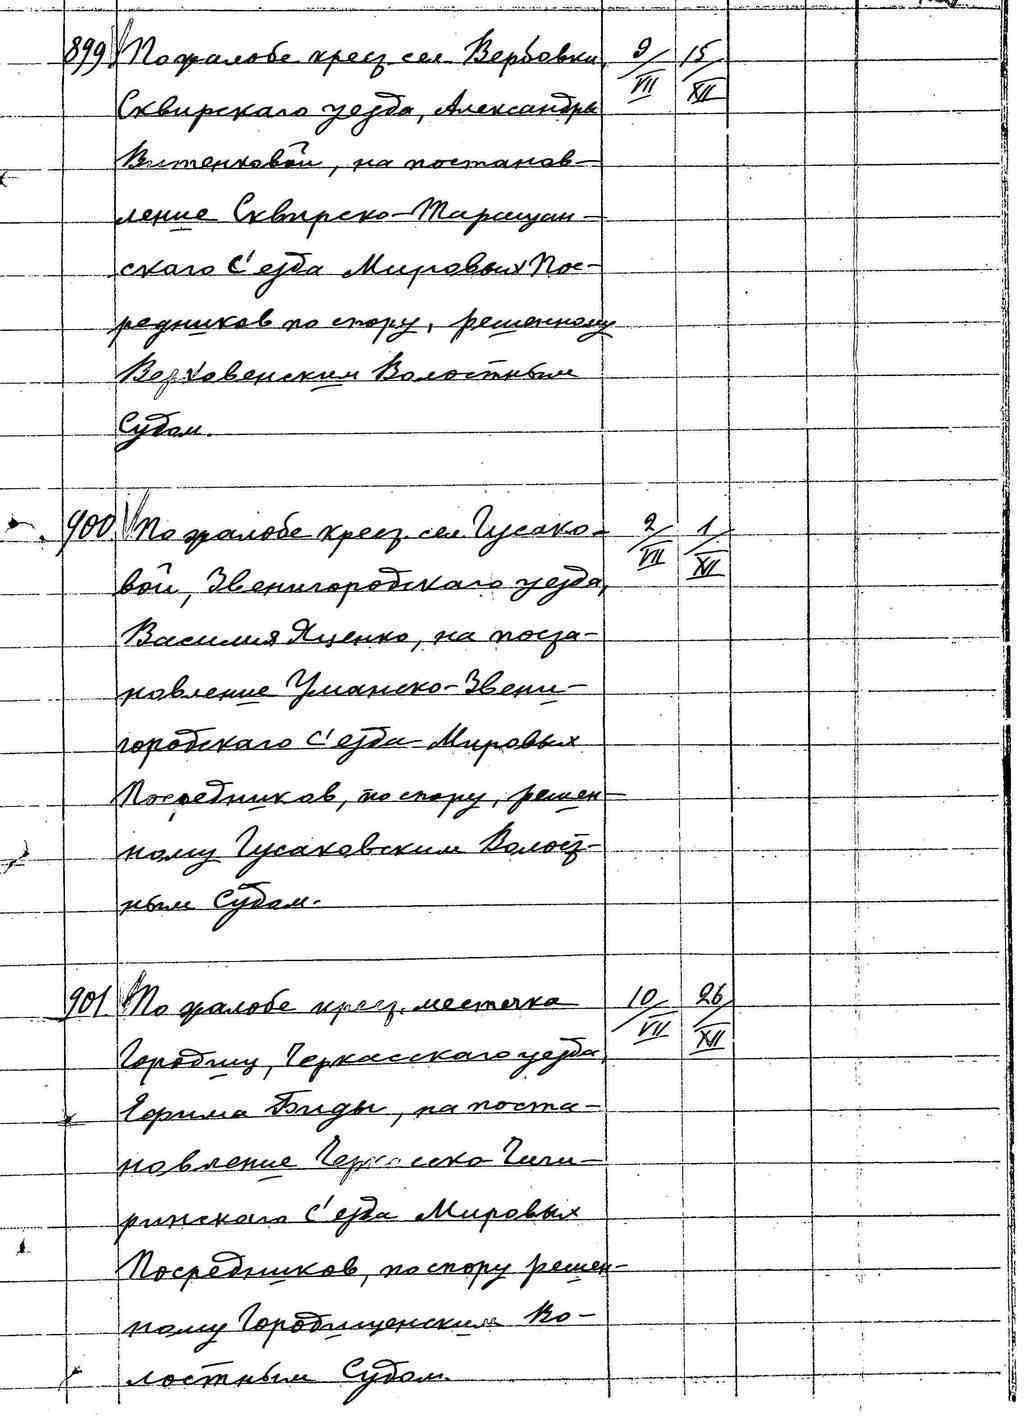 899 По жалобе крест. сел. Вербовки, 9/VII 15/XII
Сквирскаго уезда, Александры
Витенковой, на постанов-
ление Сквирско-Таращан-
скаго С'езда Мировых Пос-
редников по спору, решенному
Верховенским Волостным
Судом.
900 По жалобе крест. сел. Гусако- 2/VII 1/XII
вой, Звенигородскаго уезда,
Василия Яценко, на поста-
новление Уманско-Звени-
городскаго С'езда Мировых
Посредников, по спору, решен-
ному Гусаковским Волост-
ным Судом.
901 По жалобе крест. местечка 10/VII 26/XII
Городищ, Черкасскаго уезда,
Ефима Биды, на поста-
новление Черкасско-Чиги-
ринскаго С'езда Мировых
Посредников, по спору решен-
ному Городищенским Во-
лостным Судом.